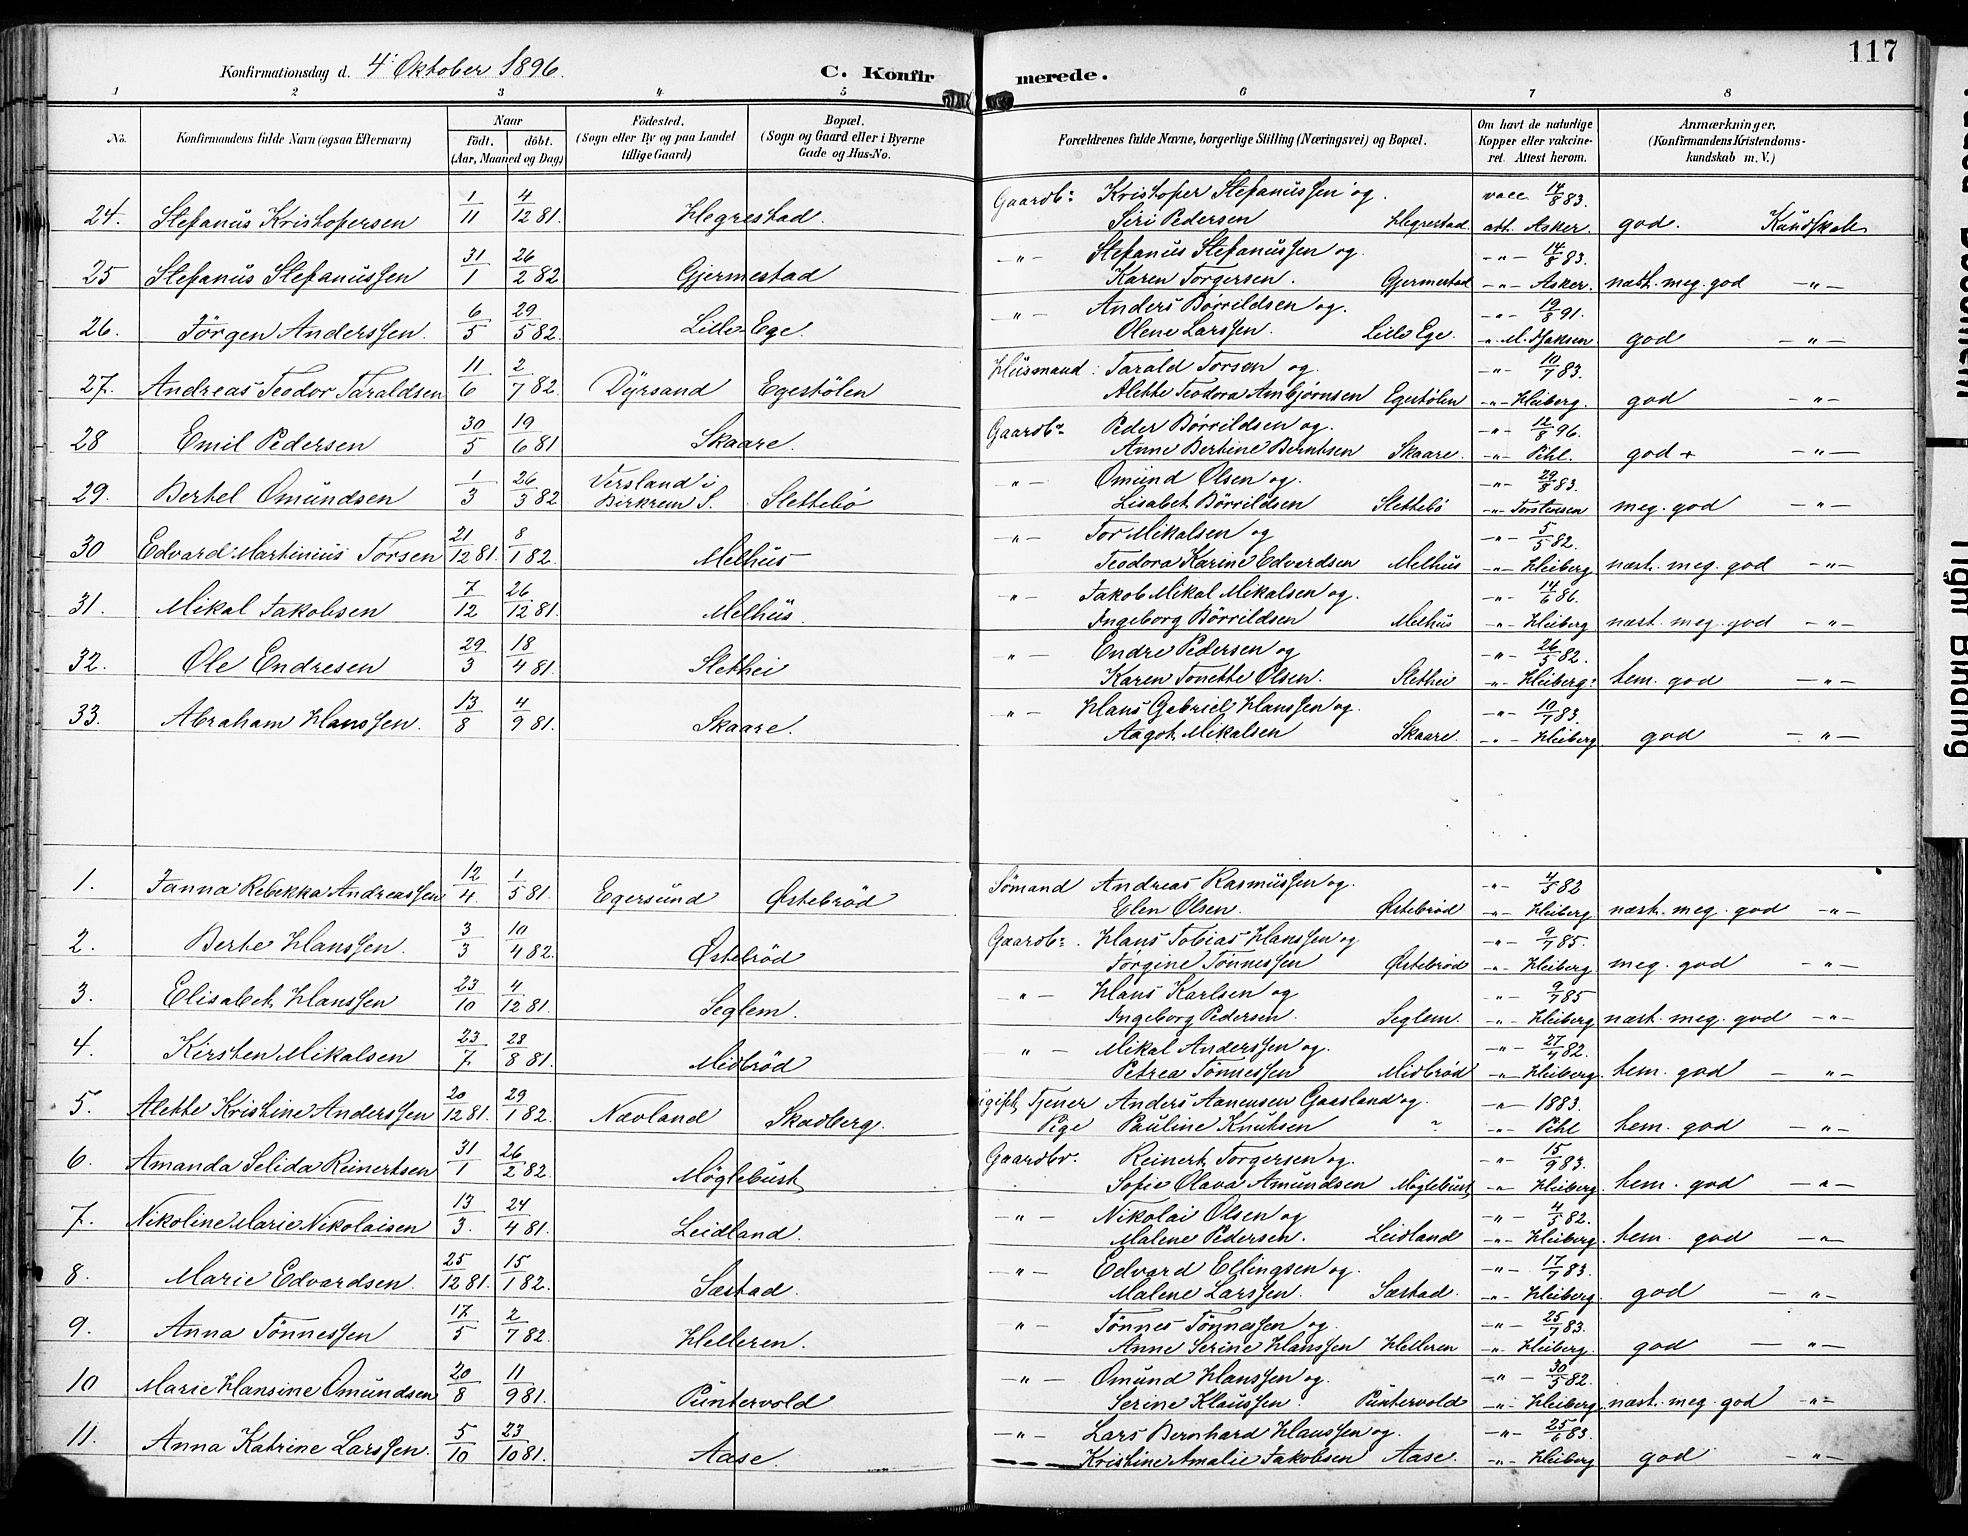 Konfirmationsdag d. 4' Oktober 1896.
C. Konfirmerede.
117
1 2 3 4 5 6 7 8
No. Konfirmandens fulde Navn (ogsaa Efternavn) Naar Født. døbt. (Aar, Maaned og Dag) Fødested. (Sogn eller By og paa Landet tillige Gaard) Bopæl. (Sogn og Gaard eller i Byerne Gade og Hus-No. Forældrenes fulde Navne, borgerlige Stilling (Næringsvei) og Bopæl. Om havt de naturlige Kopper eller vakcineret. Attest herom. Anmærkninger, (Konfirmandens Kristendomskundskab m. V.)
24. Stefanus Kristofersen 1/11 4/12 81. Hegrestad. Gaardbr: Kristofer Stefanussen og Siri Pedersen Hegrestad vacc 14/8 83. att. Asker. god. Kundskab
25 Stefanus Stefanussen 31/1 26/2 82 Gjermestad -"- Stefanus Stefanussen og Karen Torgersen. Gjermestad -"- 14/8 83. -"- Asker. næst. meg. god -"-
26. Jørgen Anderssen. 6/5 29/5 82. Lille Ege -"- Anders Børrildsen og Olene Larssen. Lille Ege. -"- 19/8 91. god -"-
27. Andreas Teodor Taraldsen 11/6 2/7 82. Dyrsand Egestølen Husmand: Tarald Torsen og Alette Teodora Ambjørnsen Egestølen -"- 10/7 83. -"- Heiberg. god -"-
28 Emil Pedersen 30/5 19/6 81 Skaare. Gaardbr Peder Børrildsen og. Anne Bertine Berntsen Skaare. -"- 12/8 96. -"- Pihl. god + -"-
29. Bertel Omundsen 1/3 26/3 82 Versland i Birkrem S. Slettebø -"- Omund Olsen og. Lisabet Børrildsen Slettebø -"- 29/8 83. -"- Torstensen meg. god -"-
30 Edvard Martinius Torsen 21/12 81. 8/1 82. Melhus -"- Tor Mikalsen og Teodora Karine Edvardsen Melhus -"- 5/5 82. -"- Heiberg næst. meg. god -"-
31. Mikal Jakobsen 7/12 26/12 81. Melhus. -"- Jakob Mikal Mikalsen og. Ingeborg Børrildsen Melhus -"- 14/6 86. -"- Heiberg næst. meg. god -"-
32. Ole Endresen 29/3 18/4 81. Slethei -"- Endre Pedersen og Karen Tonette Olsen. Slethei -"- 26/5 82. -"- Heiberg. tem. god -"-
33. Abraham Hanssen. 13/8 4/9 81. Skaare. -"- Hans Gabriel Hanssen og. Aagot Mikalsen Skaare. -"- 10/7 83. -"- Heiberg. god -"-
1. Janna Rebekka Andreassen 12/4. 1/5 81. Egersund Østebrød Sømand Andreas Rasmussen og. Elen Olsen. Østebrød -"- 4/5 82 -"- Heiberg næst. meg. god -"-
2. Berte Hanssen. 3/3 10/4 82. Østebrød Gaardbr: Hans Tobias Hanssen og Jørgine Tønnessen Østebrød -"- 9/7 85. -"- Heiberg. meg. god -"-
3. Elisabet Hanssen 23/10 4/12 81. Seglem. -"- Hans Karlsen og Ingeborg Pedersen. Seglem. -"- 9/7 85 -"- Heiberg næst. meg. god -"-
4. Kirsten Mikalsen 23/7. 28/8 81. Midbrød -"- Mikal Anderssen og. Petrea Tønnessen Midbrød -"- 27/4 82. -"- Heiberg. tem. god -"-
5. Alette Kristine Anderssen 20/12 81. 29/1 82. Navland Skadberg. Tjener Anders Aanensen Gaasland og. Pige Pauline Knutsen " -"- 1883. -"- Pihl tem. god -"-
6. Amanda Selida Reinertsen 31/1 26/2 82. Møglebust Gaardbr. Reinert Torgersen og. Sofie Olava Amundsen Møglebust -"- 15/9 83. -"- Heiberg. tem. god -"-
7. Nikoline Marie Nikolaisen 13/3. 24/4 81. Leidland. -"- Nikolai Olsen og Malene Pedersen. Leidland -"- 4/5 82. -"- Heiberg. tem. god -"-
8. Marie Edvardsen. 25/12 81. 15/1 82. Sæstad. -"- Edvard Ellingsen og. Malene Larssen. Sæstad. -"- 17/7 83. -"- Heiberg. god -"-
9. Anna Tønnessen 17/5 2/7 82. Helleren. -"- Tønnes Tønnessen og. Anne Serine Hanssen Helleren -"- 25/7 83. -"- Heiberg. god -"-
10 Marie Hansine Omundsen 20/8 11/9 81. Puntervold -"- Omund Hanssen og. Serine Klaussen. Puntervold -"- 30/5 82. -"- Heiberg. næst. meg. god -"-
11. Anna Katrine Larssen. 5/10 23/10 81. Aase. -"- Lars Bernhard Hanssen og. Kristine Amalie Jakobsen Aase. -"- 25/6 83. -"- Heiberg god -"-
Tight Binding